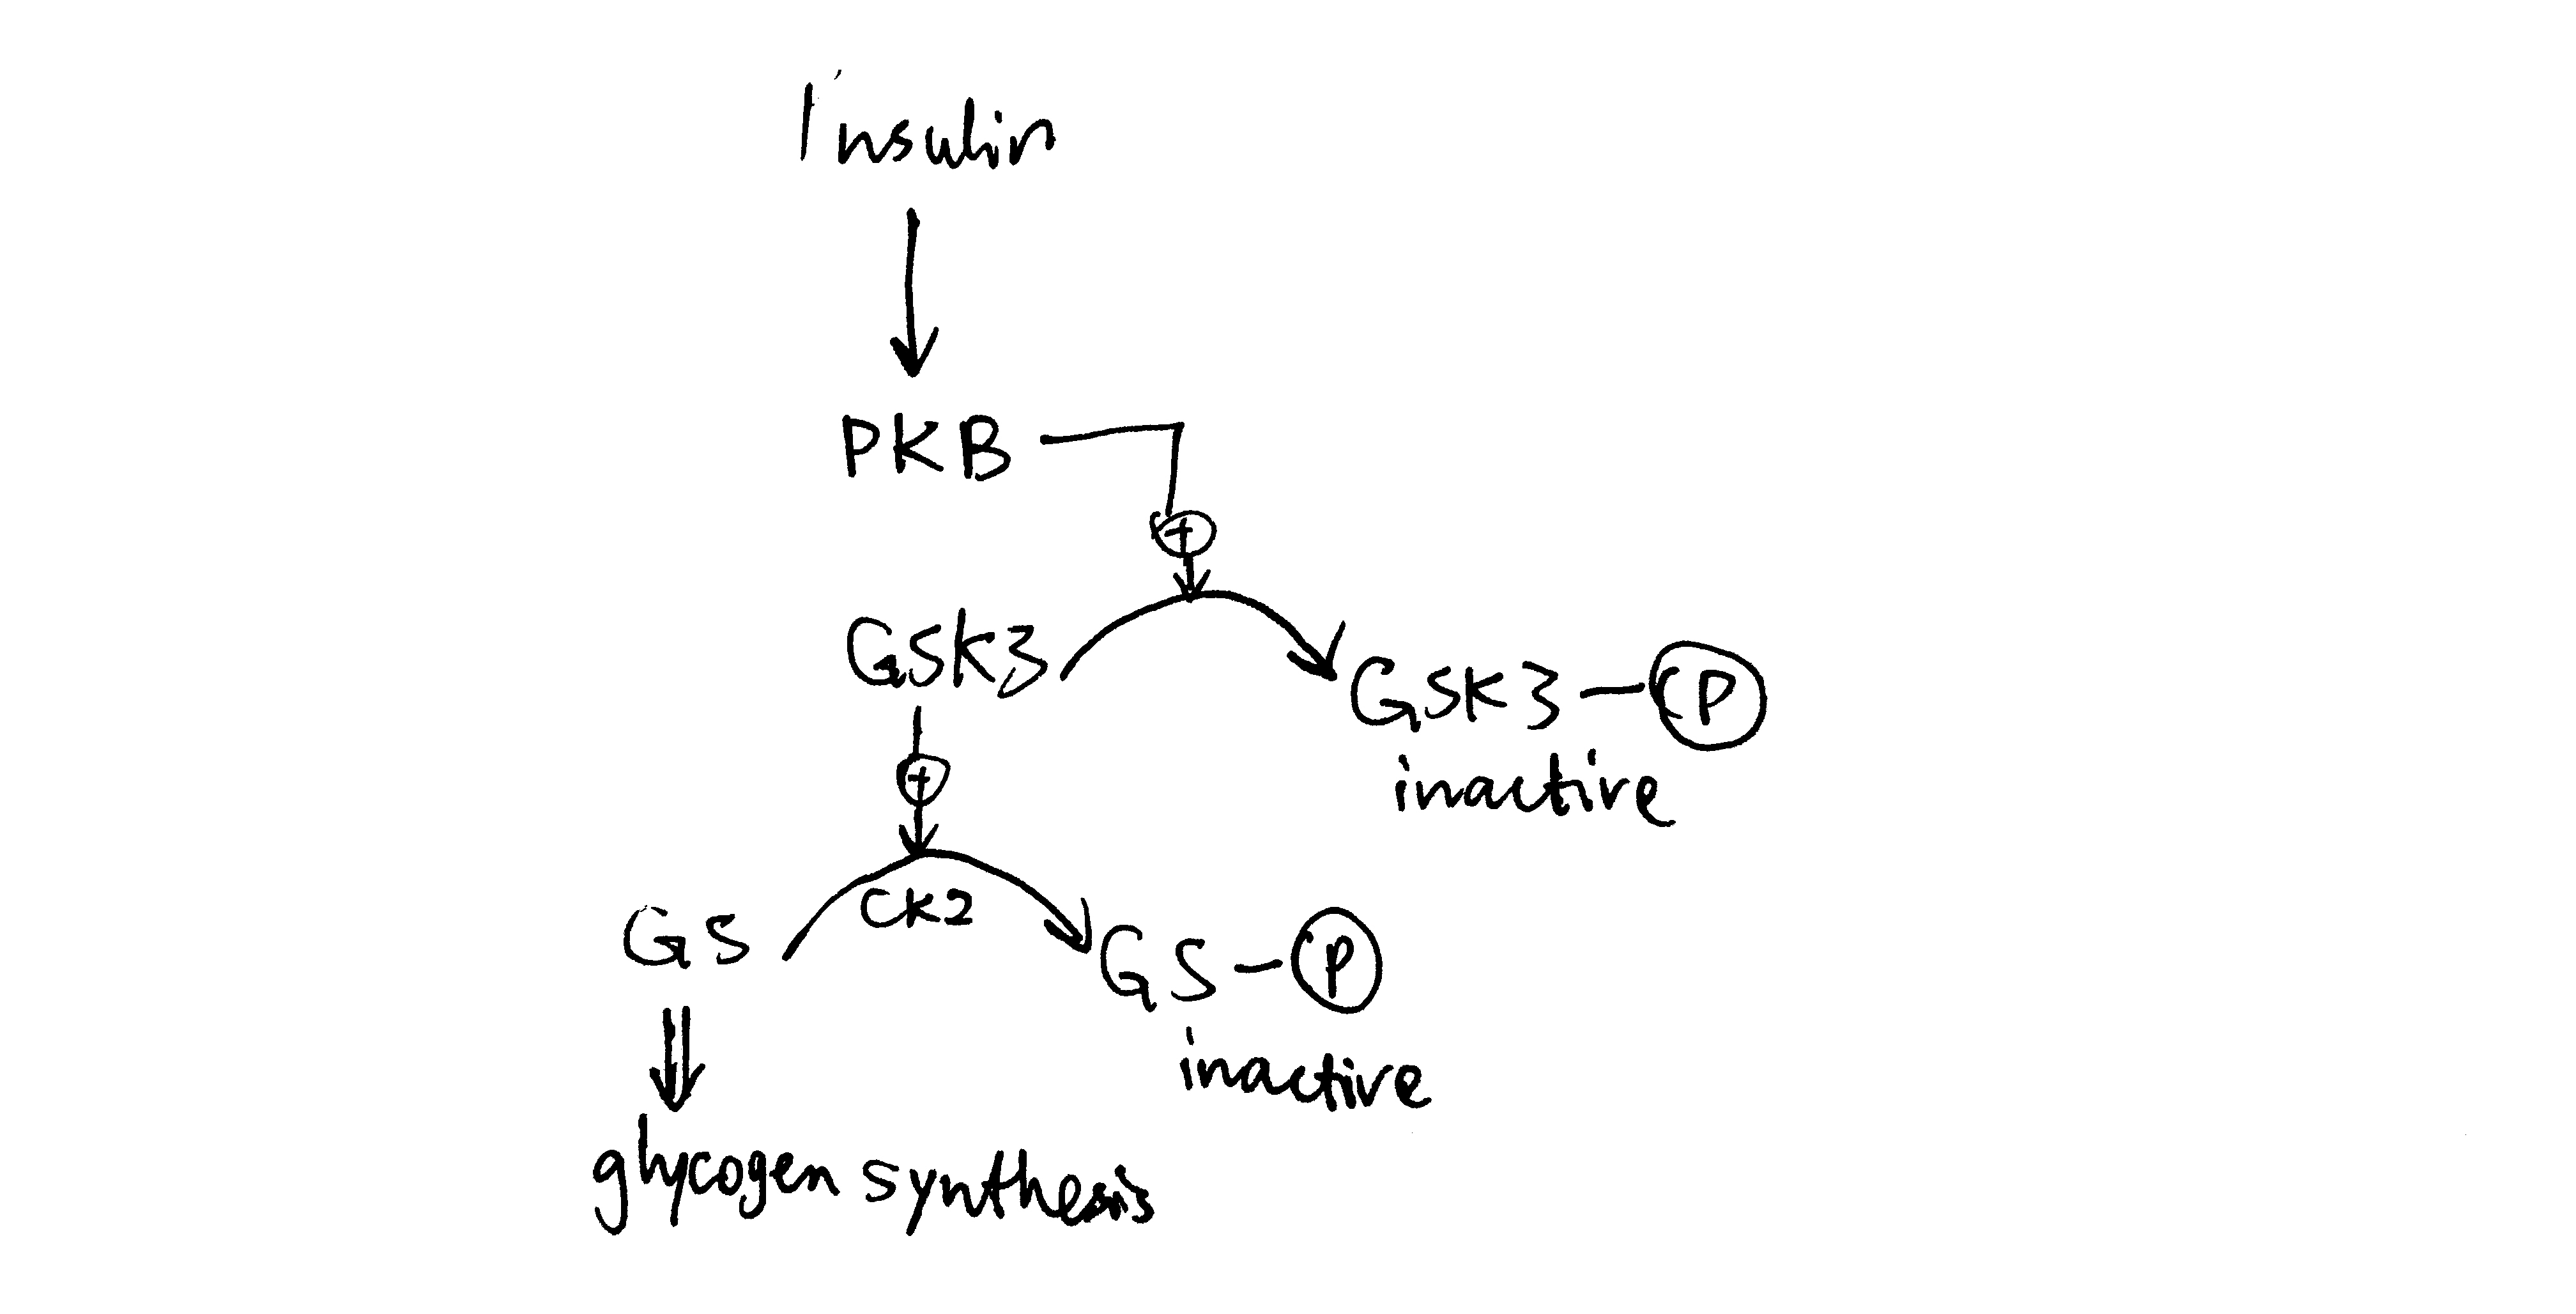 Insulin
PKB
+
GSK3
GSK3 - P
inactive
+
CK2
GS
GS - P
inactive
glycogen synthesis